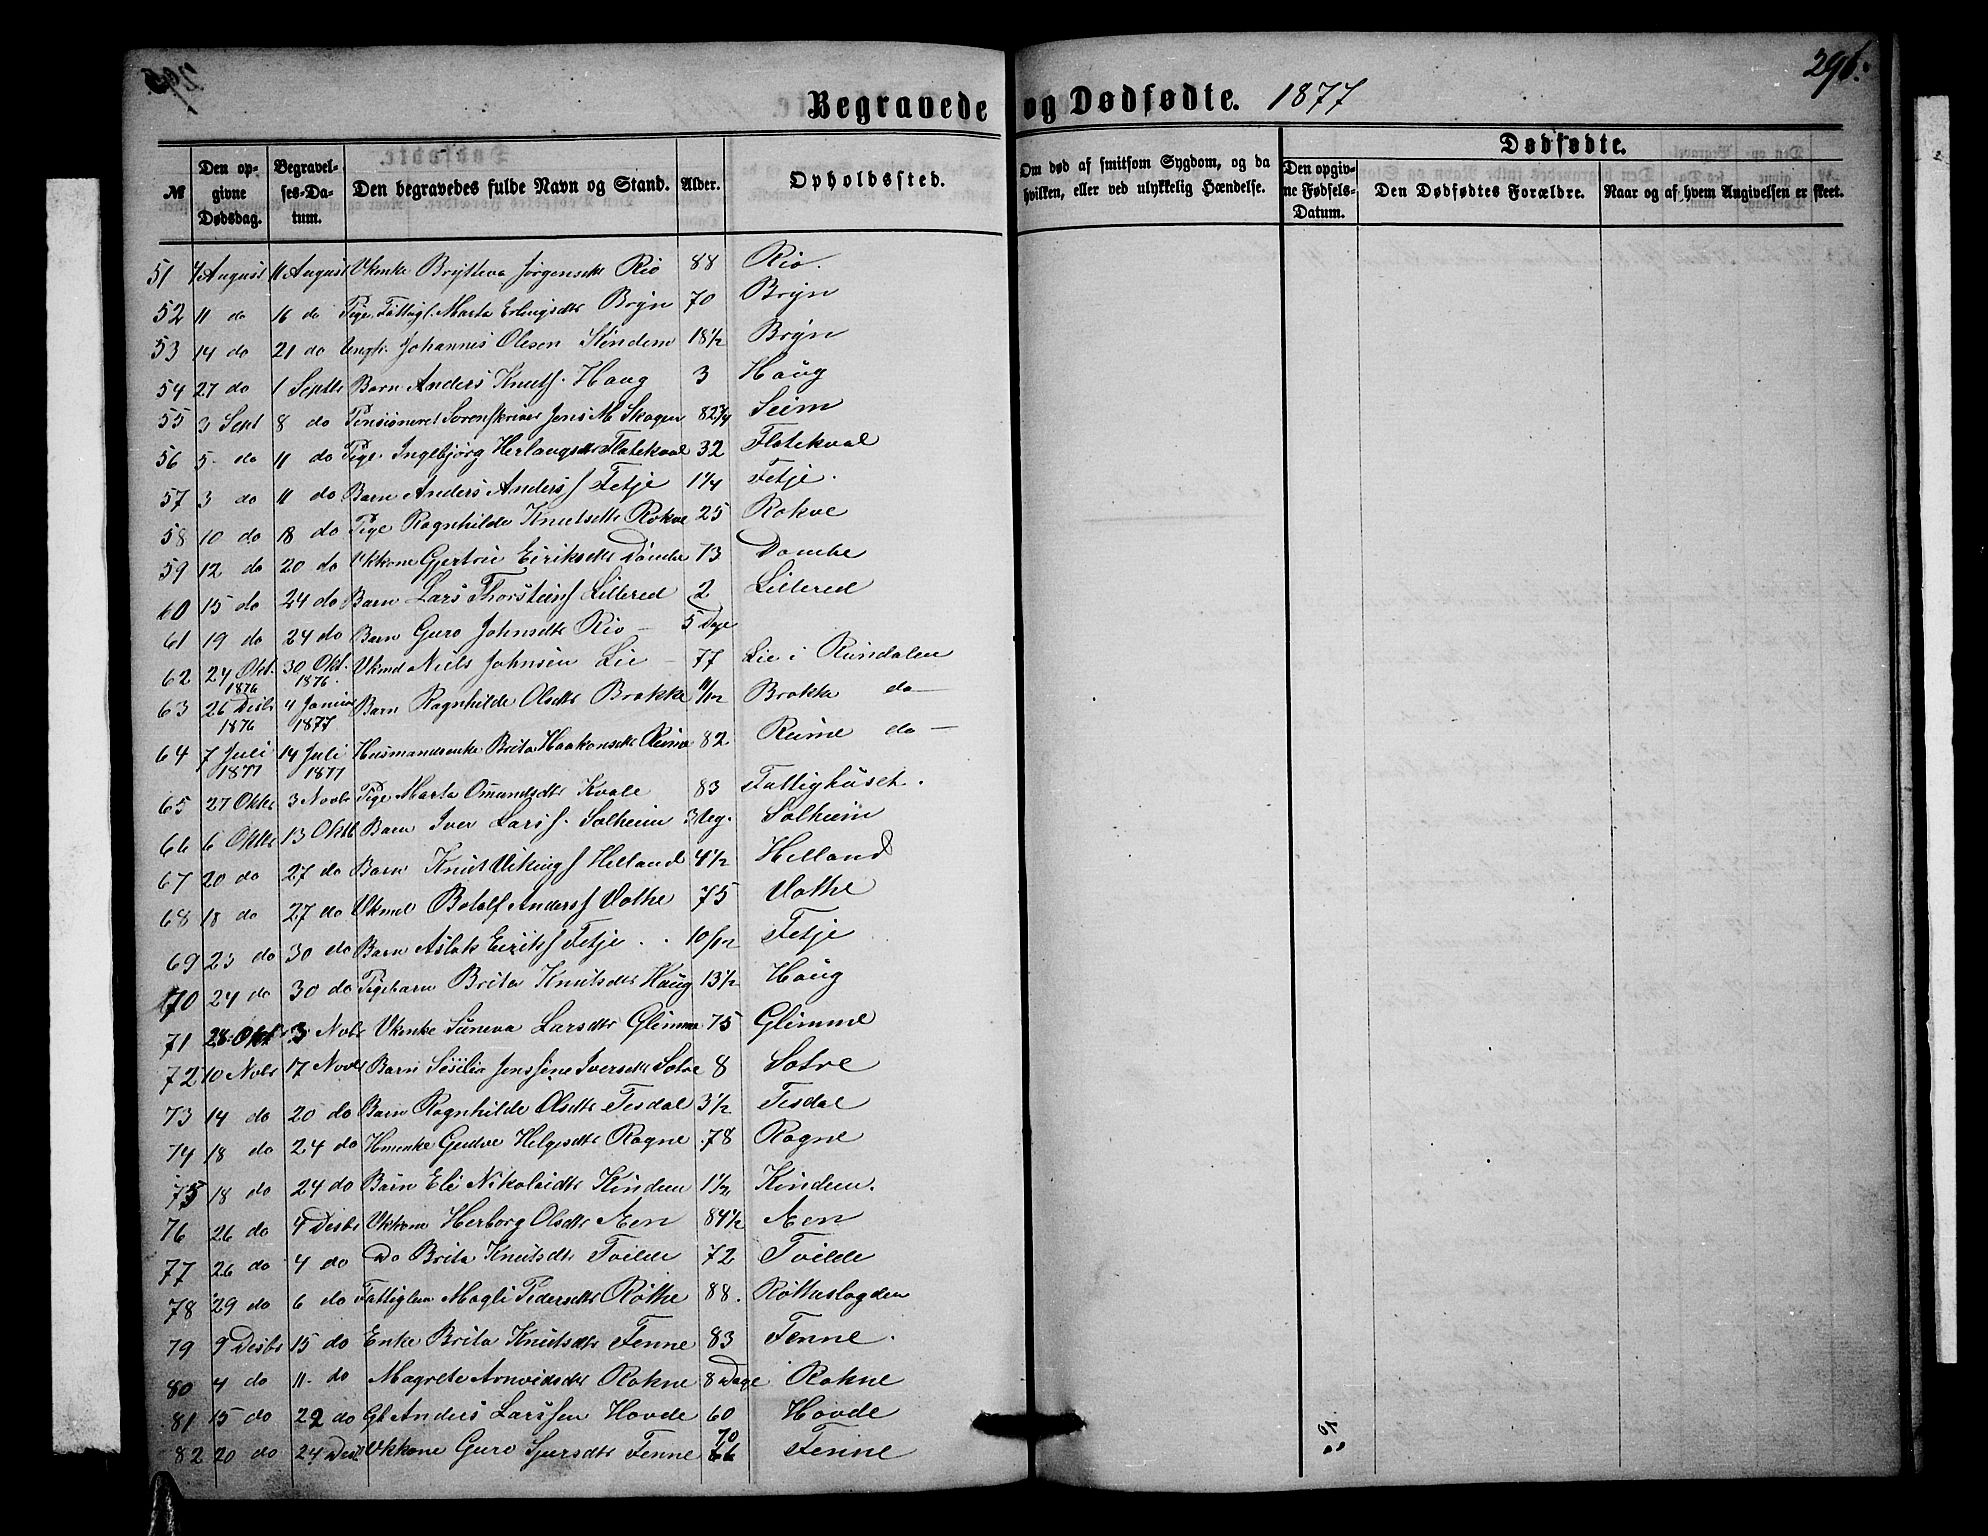 296.
Begravede og Dødfødte. 1877
Dødfødte.
№ Den opgivne Dødsdag. Begravelses-Datum. Den begravedes fulde Navn og Stand. Alder. Opholdssted. Om død af smitsom Sygdom, og da hvilken, eller ved ulykkelig Hændelse. Den opgivne Fødsels-Datum. Den Dødfødtes Forældre. Naar og af hvem Angivelsen er skeet.
51 4 August 11 August Vkenke Brytteva Jørgensdtr Rio 88 Rio.
52 11 do 16 do Pige, Fattigl. Marta Erlingsdtr Bryn 70 Bryn
53 14 do 21 do Ungk. Johannes Olesen Kindem 18 1/2 Bryn
54 27 do 1 Septbr Barn Anders Knuts. Haug 3 Haug
55 3 Sept 8 do Pensioneret Sorenskriver Jens M. Skogen 82 3/4 Seim
56 5 do 11 do Pige Ingebjørg Herlaugsdtr Flatekval 32 Flatekval
57 3 do 11 do Barn Anders Anders f Tetje 1 1/4 Tetje.
58 10 do 18 do Pige Ragnhilde Knutsdtr Rokve 25 Rokve
59 12 do 20 do Vkkone Gjertrü Eiriksdtr Dambe 73 Dambe
60 15 do 24 do Barn Lars Thorsteins f Lillered 2 Lillered
61 19 do 24 do Barn Guro Johnsdtr Rio — 5 Dage
62 24 Okt. 1876 30 Okt. 1876. Vkmd Niels Johnsen Lie — 77 Lie i Rundalen
63 26 Desbr 1876 4 Januar 1877 Barn Ragnhilde Olsdtr Brekke 11/12 Brekke do —
64 7 Juli 1877 14 Juli 1877 Husmandsenke Brita Haakonsdtr Reime 82 Reime do —
65 27 Oktbr 3 Novbr Pige Marta Omundsdtr Kvale 83 Fattighuset.
66 6 Oktbr 13 Oktb Barn Iver Lars f. Solheim 3 Ug. Solheim
67 20 do 27 do Barn Knut Vikings f Helland 4 1/2 Helland
68 18 do 27 do Vkmd Botolf Anders f Væthe 75 Væthe
69 23 do 30 do Barn Aslak Eiriks f Tetje 10/12 Tetje
70 24 do 30 do Pigebarn Brita Knutsdtr Haug 13 1/2 Haug
71 28 Okt 3 Novbr Vkenke Süneva Larsdtr Glimme 75 Glimme
72 10 Novbr 17 Novbr Barn Sesilia Jensine Iversdtr Sotve 8 Sotve
73 14 do 20 do Barn Ragnhilde Olsdtr Tesdal 3 1/2 Tesdal
74 18 do 24 do Hmenke Gudve Helgesdtr Rogne 78 Rogne
75 18 do 24 do Barn Eli Nikolaidtr Kindem 1 1/2 Kindem.
76 26 do 4 Desbr Vkkone Herborg Olsdtr Æen 84 1/2 Æen
77 26 do 4 do Do Brita Knutsdtr Tvilde 72 Tvilde
78 29 do 6 do Fattiglem Magli Pedersdtr Röthe 88. Röthuslagden
79 9 Desbr 15 do Enke Brita Knutsdtr Fenne 83 Fenne.
80 4 do 11 do Magrete Arnvidsdtr Rokne 8 Dage Rokne
81 15 do 22 do Gl Anders Larssen Hovde 60 Hovde
82 20 do 24 Des Vkkone Guro Sjursdtr Fenne 70 66 Fenne